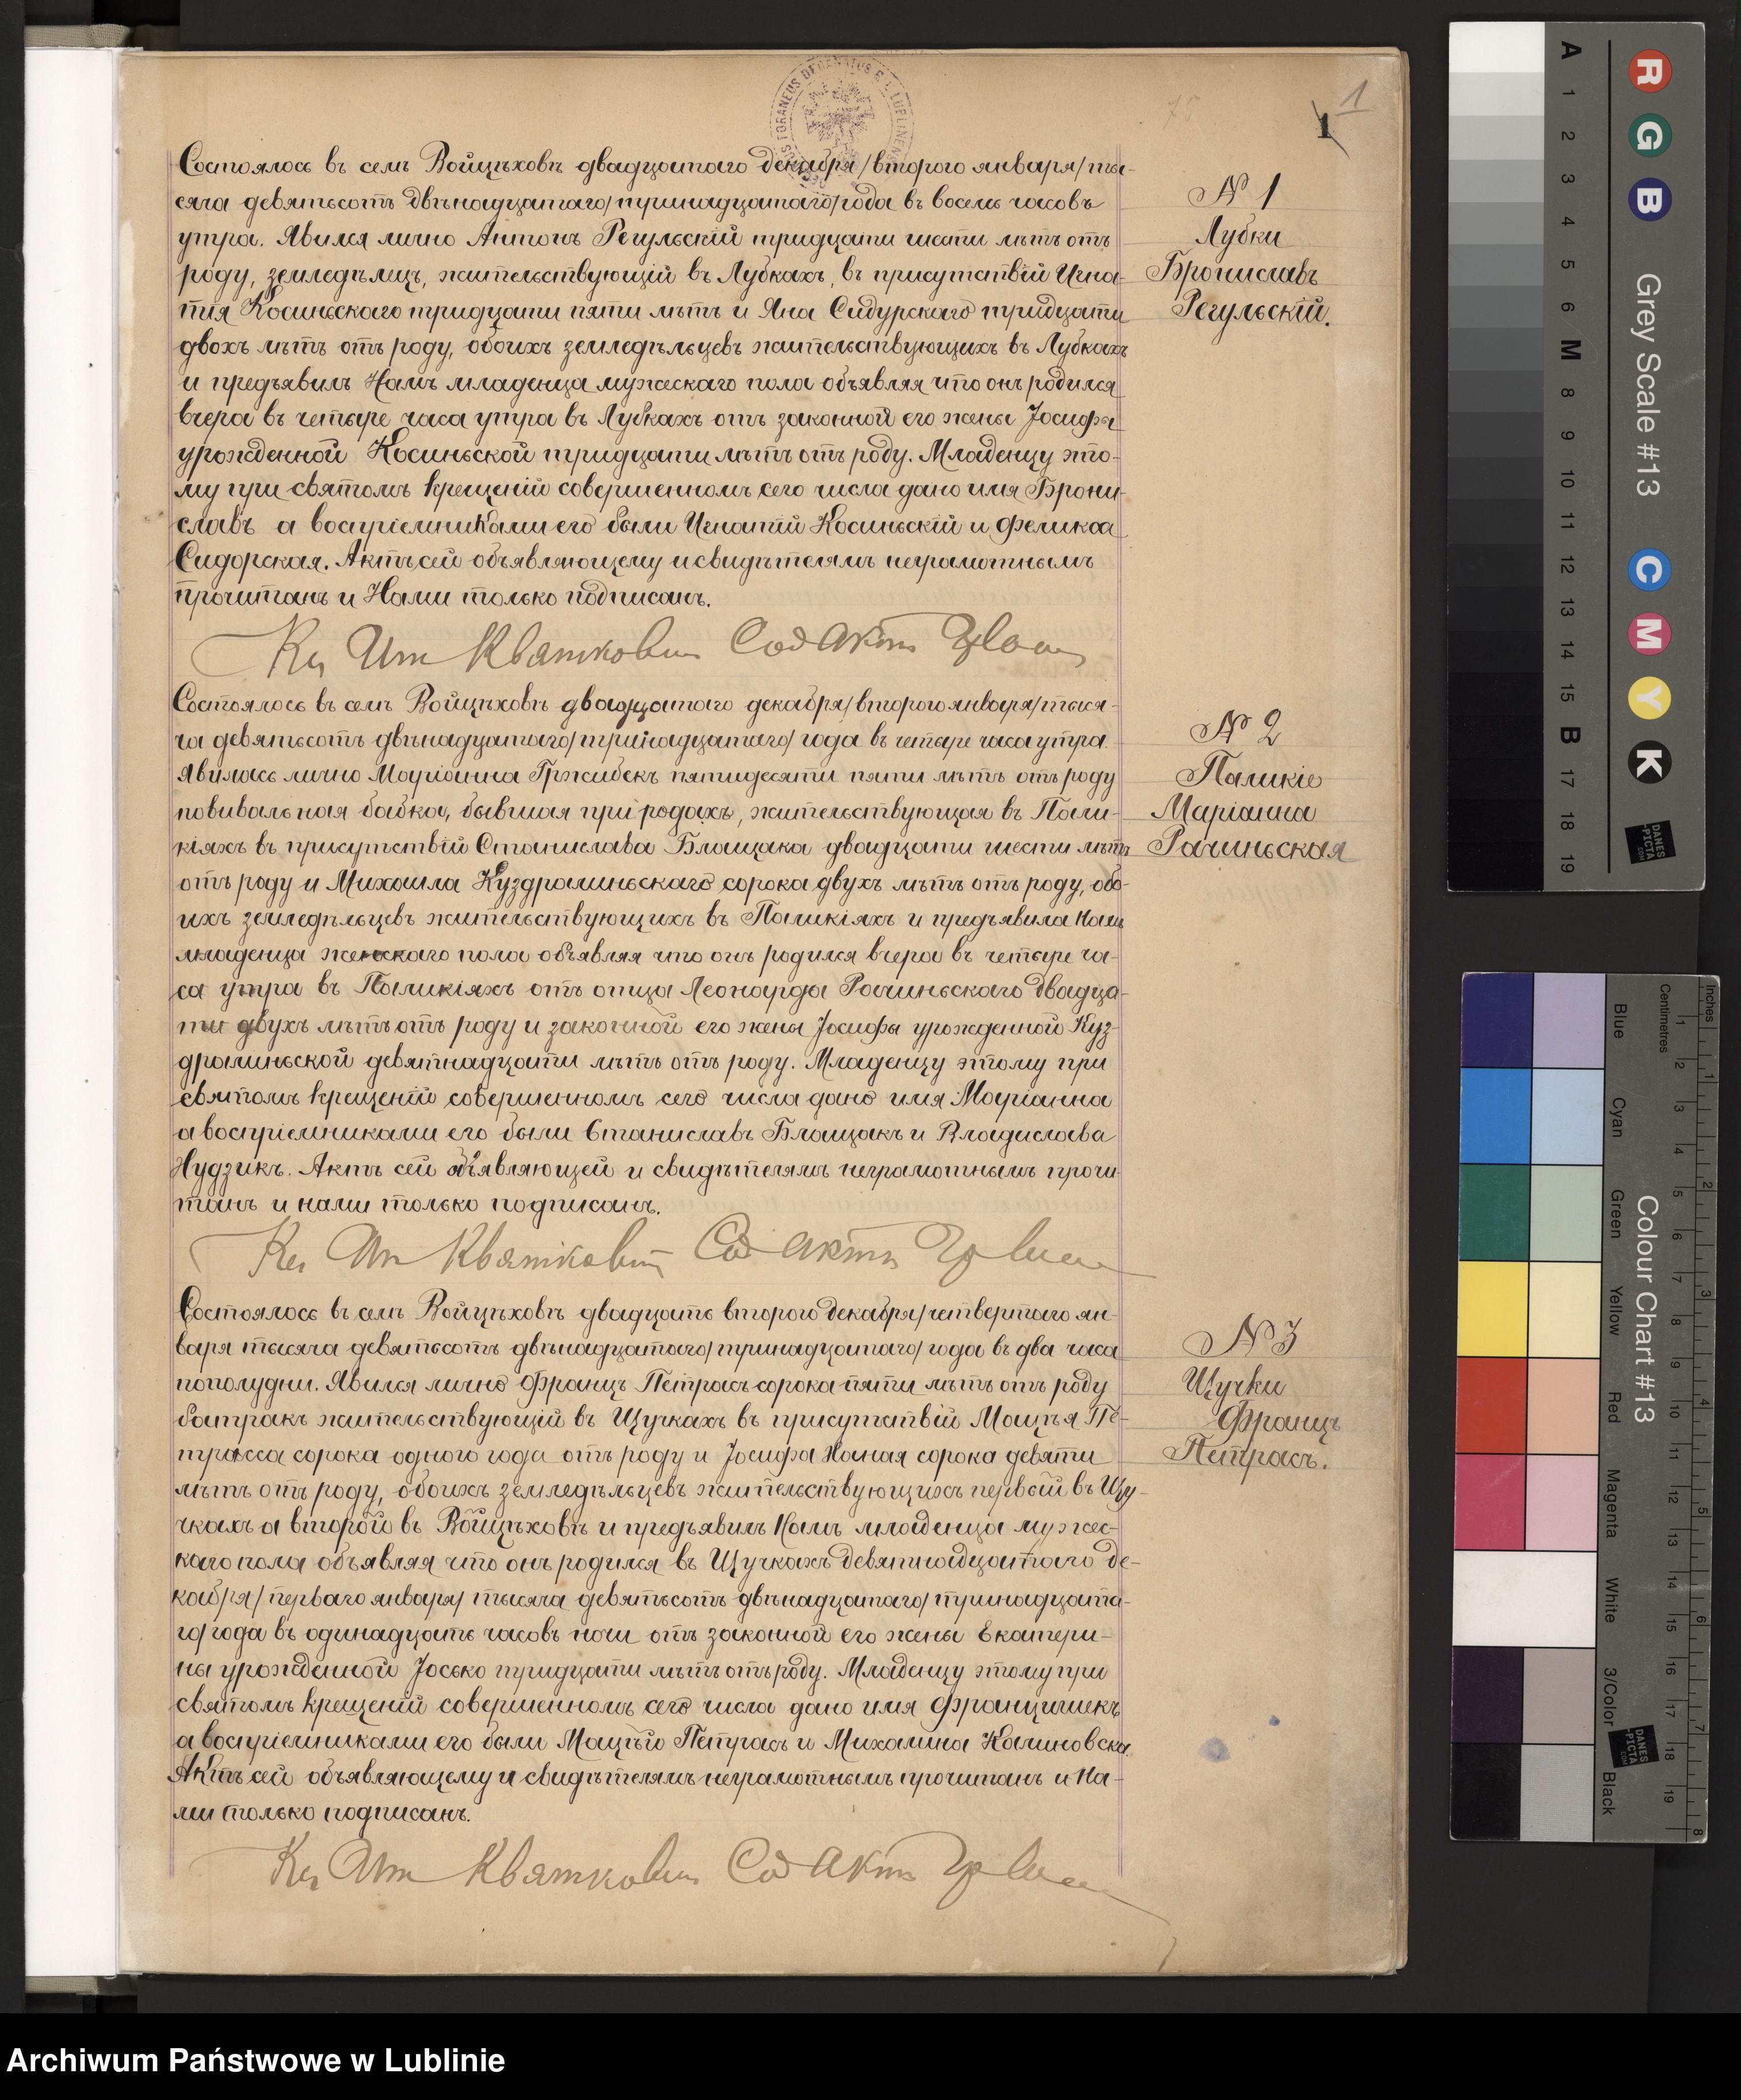 1
№ 1
Лубки
Брониславъ
Регульскій.
Состоялось въ семъ Войцѣховѣ двадцатаго декабря/второго января/ты-
сяча девятьсотъ двѣнадцатаго/тринадцатаго/года въ восемь часовъ
утра. Явился лично Антонъ Регульскій тридцати шести лѣтъ отъ
роду, земледѣлецъ, жительствующій въ Лубкахъ, въ присутствій Игна-
тія Косиньского тридцати пяти лѣтъ и Яна Сидурскаго тридцати
двохъ лѣтъ отъ роду, обоихъ земледѣльцевъ жительствующихъ въ Лубкахъ
и предъявилъ Намъ младенца мужескаго пола объявляя что онъ родился
вчера въ четыре часа утра въ Лубкахъ отъ законной его жены Іосифы
урожденной Косиньской тридцати лѣтъ отъ роду. Младенцу это-
му при святомъ крещеній совершенномъ сего числа дано имя Брони-
славъ а воспріемниками его были Игнатій Косиньскій и Феликса
Сидорская. Актъ сей объявляющему и свидѣтелямъ неграмотнымъ
прочитанъ и Нами только подписанъ.
Кс Иг Квятковск Сод Акт Гр
№ 2
Паликіе
Маріанна
Рачиньская
Состоялось въ семъ Войцѣховѣ двадцатаго декабря/второго января/тыся-
ча девятьсотъ двѣнадцатаго/тринадцатаго/года въ четыре часа утра.
Явилась лично Маріанна Гржибекъ пятидесяти пяти лѣтъ отъ роду
повивальная бабка, бывшая при родахъ, жительствующая въ Пали-
кіяхъ въ присутствій Станислава Блащака двадцати шести лѣтъ
отъ роду и Михаила Куздралиньскаго сорока двухъ лѣтъ отъ роду, обо-
ихъ земледѣльцевъ жительствующихъ въ Паликіяхъ и предъявила Намъ
младенца женскаго пола объявляя что онъ родился вчера въ четыре ча-
са утра въ Паликіяхъ отъ отца Леонарда Рачиньскаго двадца-
ти двухъ лѣтъ отъ роду и законной его жены Іосифы урожденной Куз-
дралиньской девятнадцати лѣтъ отъ роду. Младенцу этому при
святомъ крещеній совершенномъ сего числа дано имя Маріанна
а воспріемниками его были Станиславъ Блащакъ и Владислава
Нудзикъ. Актъ сей объявляющей и свидѣтелямъ неграмотнымъ прочи-
танъ и нами только подписанъ.
Кс Иг Квятковск Сод Акт Гр
№ 3
Щучки
Францъ
Петрасъ.
Состоялось въ семъ Войцѣховѣ двадцать второго декабря/четвертаго ян-
варя тысяча девятьсотъ двѣнадцатаго/тринадцатаго/года въ два часа
пополудни. Явился лично Францъ Петрасъ сорока пяти лѣтъ отъ роду
батракъ жительствующій въ Щучкахъ въ присутствій Мацѣя Пе-
трасса сорока одного года отъ роду и Іосифа Ноная сорока девяти
лѣтъ отъ роду, обоихъ земледѣльцевъ жительствующихъ первый въ Щу-
чкахъ а второй въ Войцѣховѣ и предъявилъ Намъ младенца мужес-
каго пола объявляя что онъ родился въ Щучкахъ девятнадцатаго де-
кабря/перваго января/тысяча девятьсотъ двѣнадцатаго/тринадцата-
го/года въ одинадцать часовъ ночи отъ законной его жены Екатери-
ны урожденной Іосько тридцати лѣтъ отъ роду. Младенцу этому при
святомъ крещеній совершенномъ сего числа дано имя Францишекъ
а воспріемниками его были Мацѣй Петрасъ и Михалина Калиновска.
Актъ сей объявляющему и свидѣтелямъ неграмотнымъ прочитанъ и На-
ми только подписанъ.
Кс Иг Квятковск Сод Акт Гр
Grey Scale #13
R G B C M Y K
A 1 2 3 4 5 6 M 8 9 10 11 12 13 14 15 B 17 18 19
DANES PICTA .COM
Colour Chart #13
Blue Cyan Green Yellow Red Magenta White 3/Color Black
Centimetres
Inches
Archiwum Państwowe w Lublinie